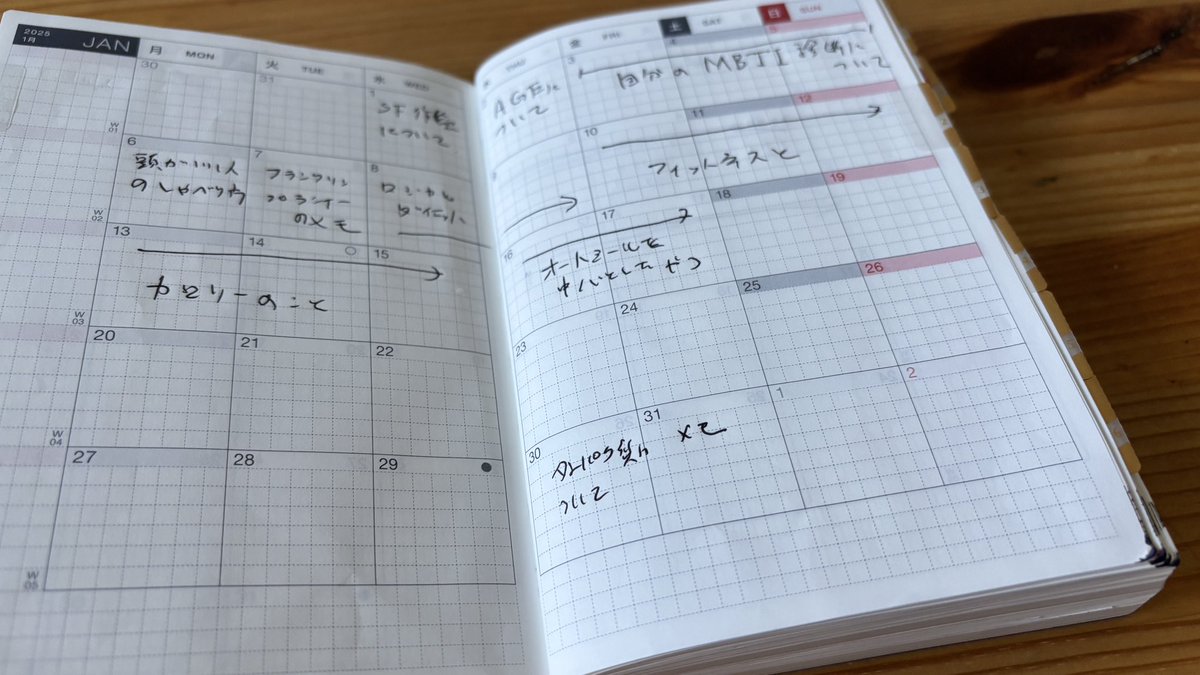 2025
1月
JAN
月 MON
火 TUE
水 WED
木 THU
金 FRI
土 SAT
日 SUN
30
31
1
について
2
AGEに
ついて
3
4
5
自分の MBTI 診断に
ついて
W
01
6
頭がいい人
のしゃべり方
7
フランクリン
プランナー
のメモ
8
9
10
11
12
フィットネスと
W
02
13
14
15
カロリーのこと
16
17
オートミールを
中心としたやつ
18
19
W
03
20
21
22
23
24
25
26
W
04
27
28
29
30
タンパク質に
ついて
31
メモ
1
2
W
05